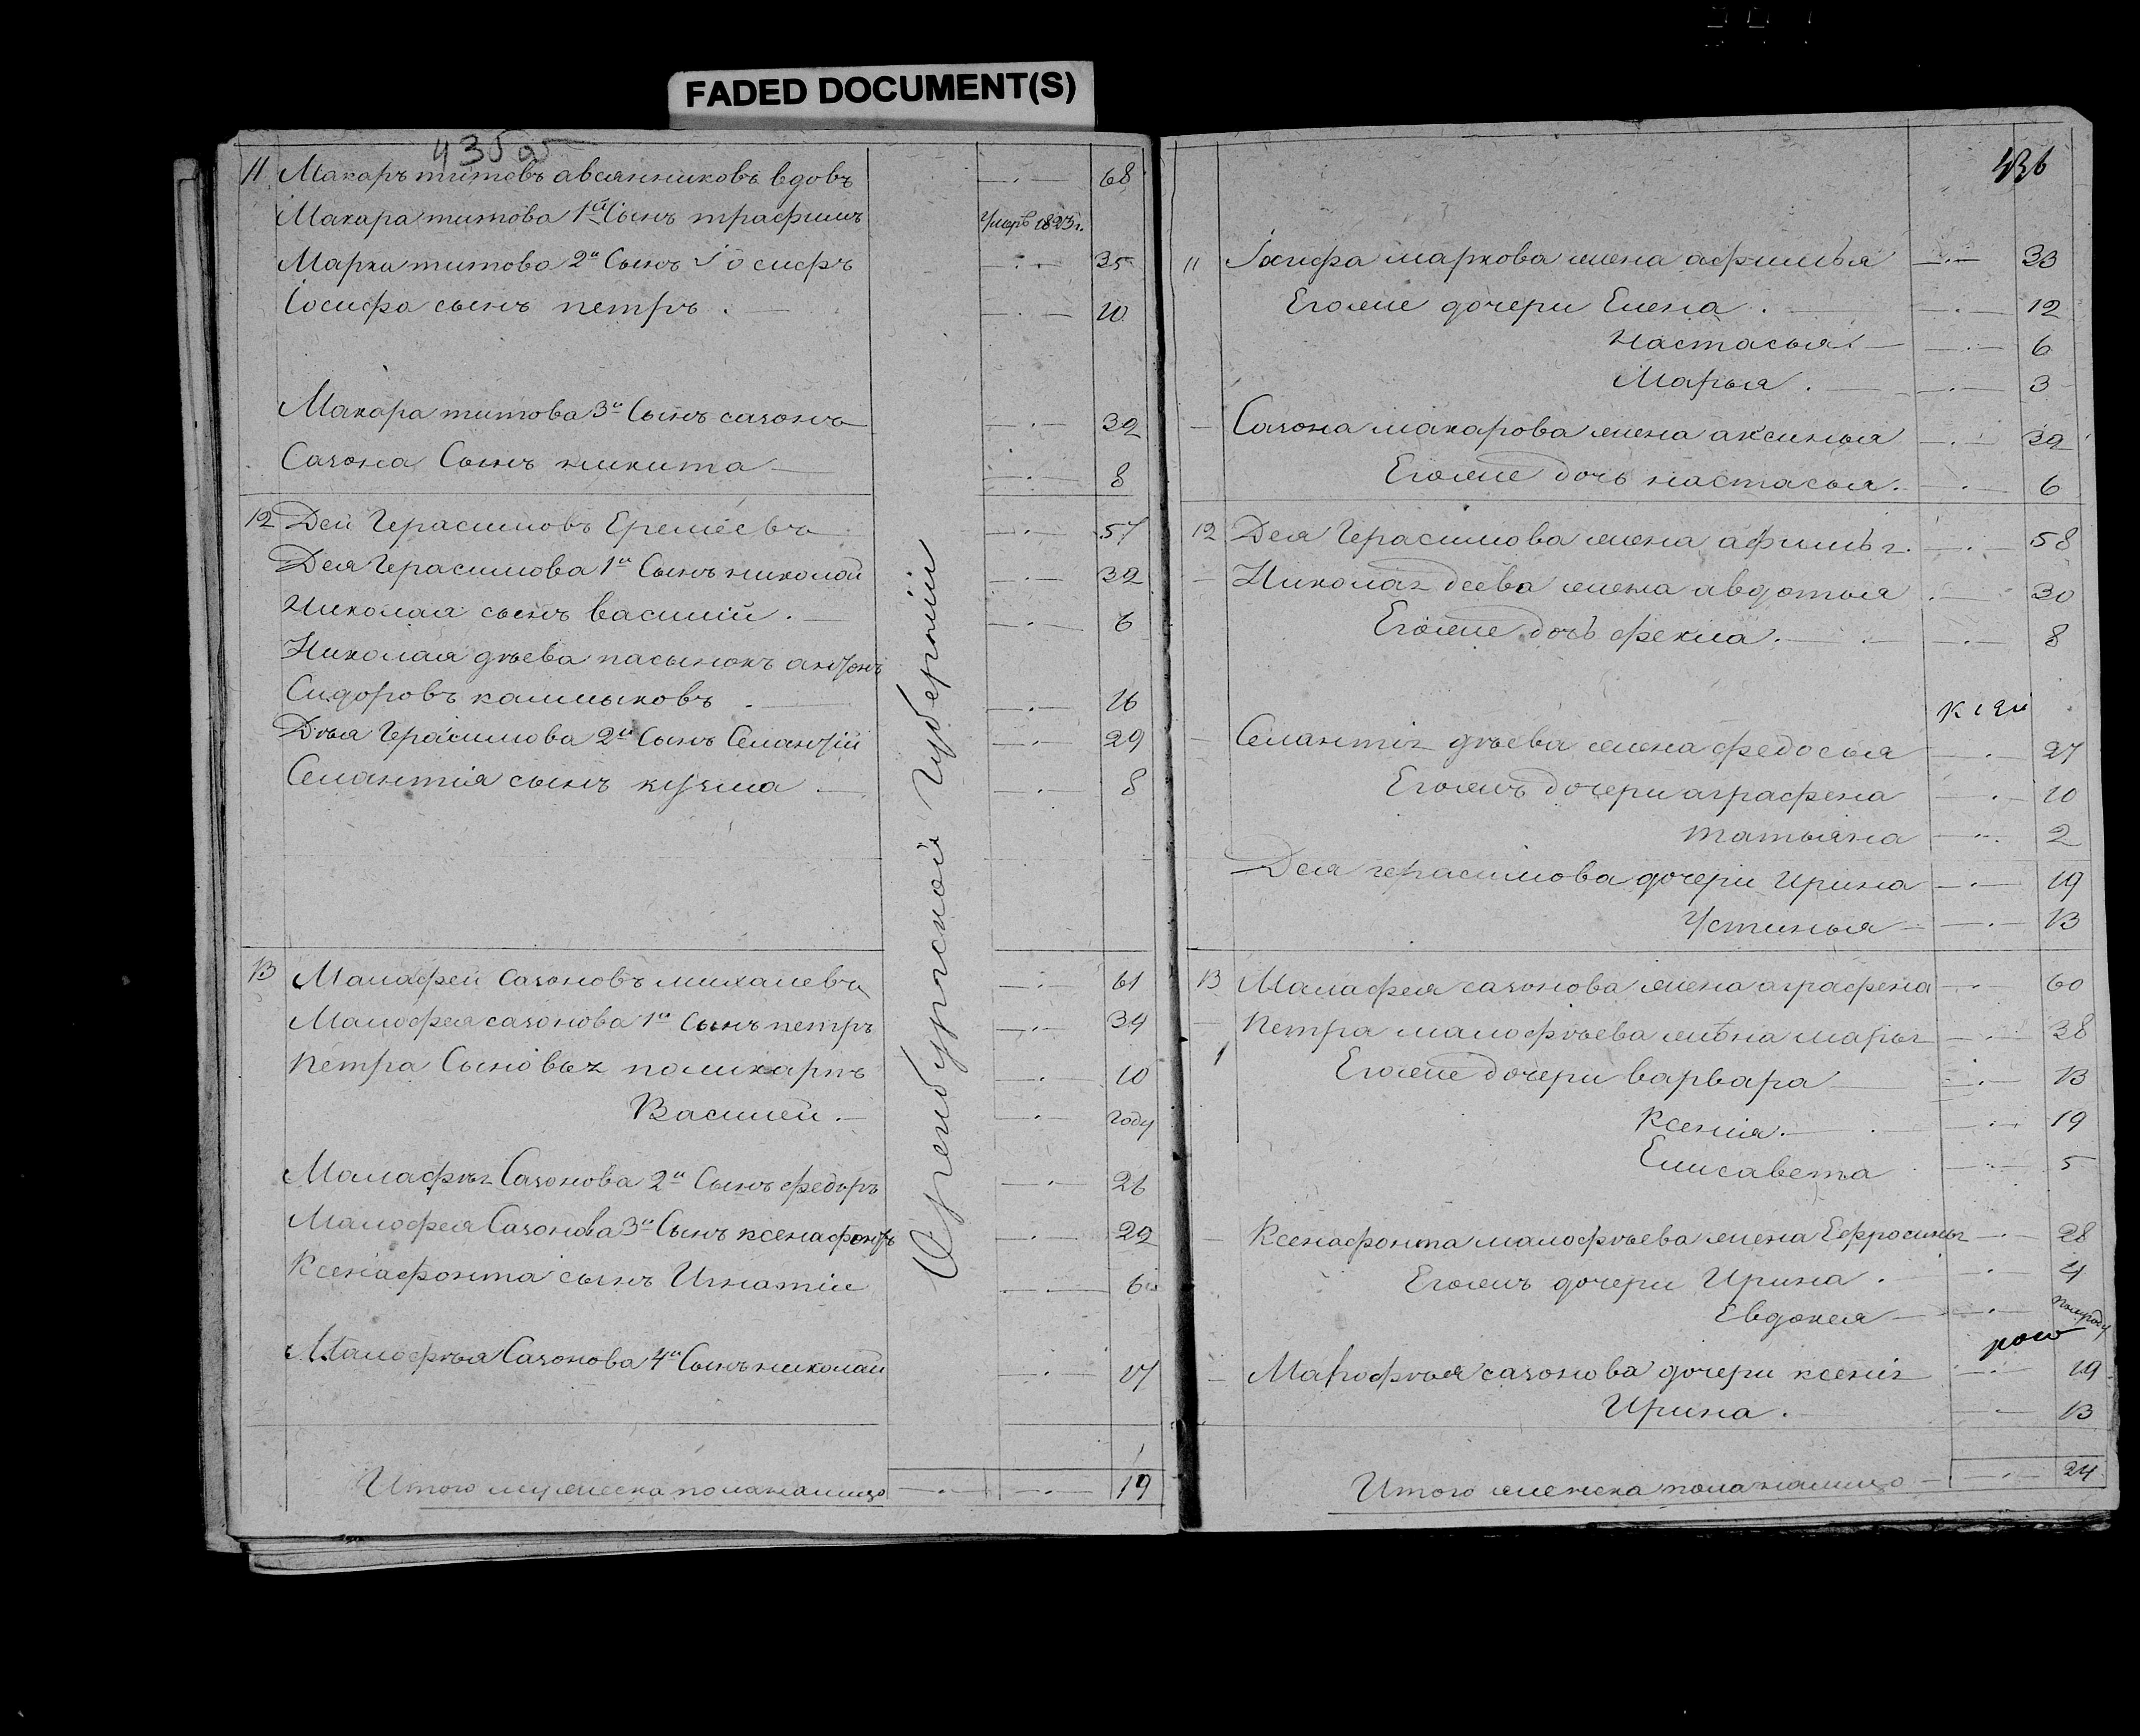 FADED DOCUMENT(S)
435 об
11 Макаръ титовъ авсянниковъ вдовъ 68
Макара титова 1й Сынъ трафимъ Умеръ 1823 г.
Марка титова 2й Сынъ Іосифъ 35
Іосифа сынъ петръ . 10
Макара титова 3й Сынъ сазонъ 32
Сазона Сынъ никита 8
12 Дей Герасимовъ Еремеевъ 57
Дея Герасимова 1й Сынъ николай 32
Николая сынъ василий . 6
Николая дѣева пасынокъ антонъ
Сидоровъ калмыковъ . 16
Дѣя Герасимова 2й Сынъ Семантій 29
Семантия сынъ кузма . 8
13 Малафей сазоновъ михалевъ 61
Малофея сазонова 1й Сынъ петръ 34
Петра Сыновья поликарпъ 10
Василей . году
Малафѣя Сазонова 2й Сынъ федоръ 26
Малофея Сазонова 3й Сынъ ксенафонтъ 22
Ксенафонта сынъ Игнатий 6
Малофѣя Сазонова 4й Сынъ николай 17
Итого мужеска пола налицо 19
Оренбургской Губернии
436
11 Іосифа маркова жена афимья 33
Его же дочери Елена . 12
Настасья . 6
Марья . 3
Сазона макарова жена аксинья 32
Его же дочь настасья . 6
12 Дея Герасимова жена афимья . 58
Николая деева жена авдотья 30
Его же дочь фекла . 8
Семантия дѣева жена федосья 27
Его жъ дочери аграфена 10
татьяна 2
Дея герасимова дочери Ирина 19
Устинья 13
13 Малафея сазонова жена аграфена 60
Петра малофѣева жена марья 38
Его же дочери варвара 13
Ксения . 19
Елисавета 5
Ксенафонта малофѣева жена Ефросинья 28
Его жъ дочери Ирина . 4
Евдокея полугоду
Малофѣя сазонова дочери ксения 19
Ирина . 13
Итого женска пола налицо 24